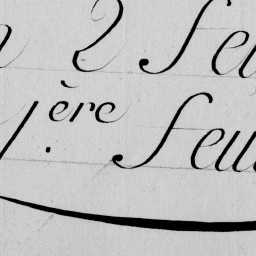 2 feu
1.ère feui